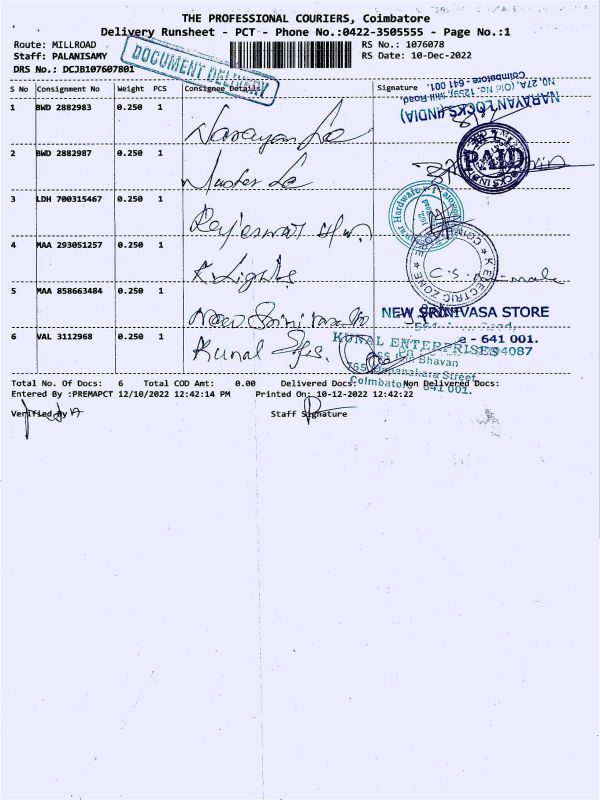 THE PROFESSIONAL COURIERS, Coimbatore
Delivery Runsheet - PCT - Phone No.:0422-3505555 - Page No.:1
Route: MILLROAD
RS No.: 1076078
Staff: PALANISAMY
RS Date: 10-Dec-2022
DRS No.: DCJB107607801
DOCUMENT DELIVERY
S No Consignment No Weight PCS Consignee Details Signature
NO. 27A, (Old No. 1259), Mill Road,
Coimbatore - 641 001.
NARAYAN LOCKS (INDIA)
1 BWD 2882983 0.250 1 Narayan Lo
2 BWD 2882987 0.250 1
PAID
3 LDH 700315467 0.250 1
4 MAA 293051257 0.250 1 K Lights
K ELECTRIC ZONE
5 MAA 858663484 0.250 1 New Srinivasa
NEW SRINIVASA STORE
- 641 001.
6 VAL 3112968 0.250 1 Kunal
KUNAL ENTERPRISES
Bhavan
Street
Coimbatore 641 001.
Total No. Of Docs: 6 Total COD Amt: 0.00 Delivered Docs: Non Delivered Docs:
Entered By :PREMAPCT 12/10/2022 12:42:14 PM Printed On: 10-12-2022 12:42:22
Verified By
Staff Signature